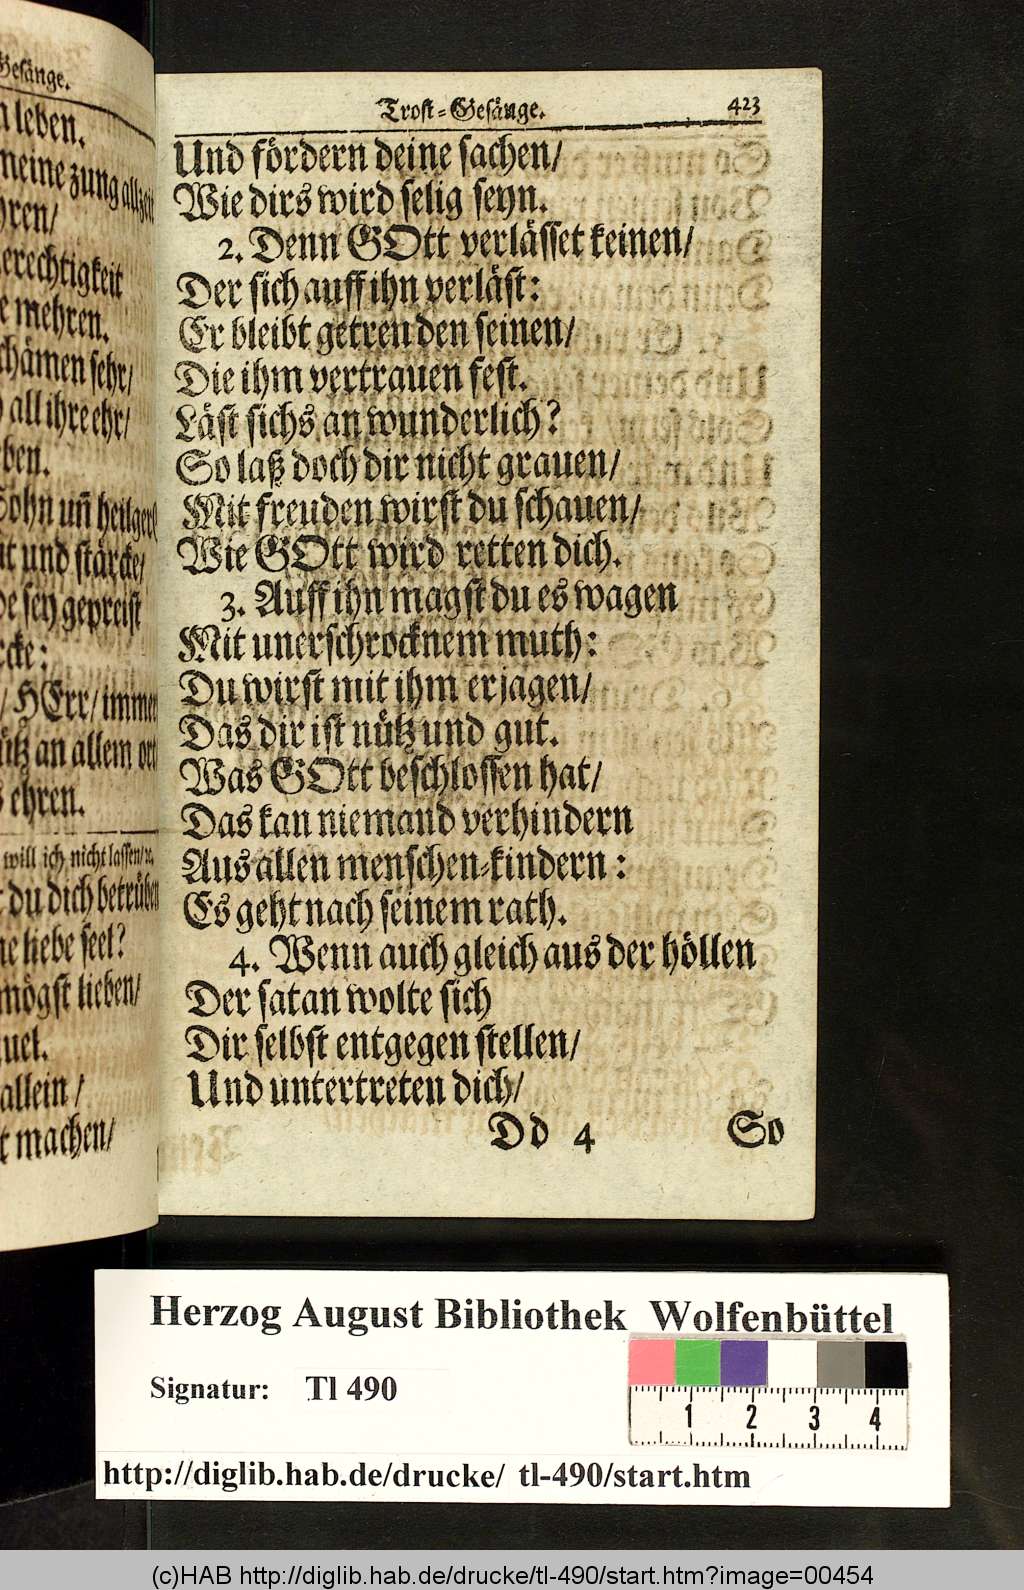 Gesänge.
leben.
meine zung allzeit
hren/
erechtigkeit
mehren.
schämen sehr/
all ihre ehr/
eben.
Sohn uñ heilger
und stärcke/
sey gepreist
rcke:
/ HErr/ immer
nütz an allem ort
ehren.
will ich nicht lassen/ꝛc.
du dich betrüben
liebe seel?
mögst lieben/
nuel.
allein /
machen/
Trost-Gesänge. 423
Und fördern deine sachen/
Wie dirs wird selig seyn.
2. Denn GOtt verlässet keinen/
Der sich auff ihn verläst:
Er bleibt getren den seinen/
Die ihm vertrauen fest.
Läst sichs an wunderlich?
So laß doch dir nicht grauen/
Mit freuden wirst du schauen/
Wie GOtt wird retten dich.
3. Auff ihn magst du es wagen
Mit unerschrocknem muth:
Du wirst mit ihm erjagen/
Das dir ist nütz und gut.
Was GOtt beschlossen hat/
Das kan niemand verhindern
Aus allen menschen-kindern:
Es geht nach seinem rath.
4. Wenn auch gleich aus der höllen
Der satan wolte sich
Dir selbst entgegen stellen/
Und untertreten dich/
Dd 4 So
Herzog August Bibliothek Wolfenbüttel
Signatur: Tl 490
1 2 3 4
http://diglib.hab.de/drucke/ tl-490/start.htm
(c)HAB http://diglib.hab.de/drucke/tl-490/start.htm?image=00454